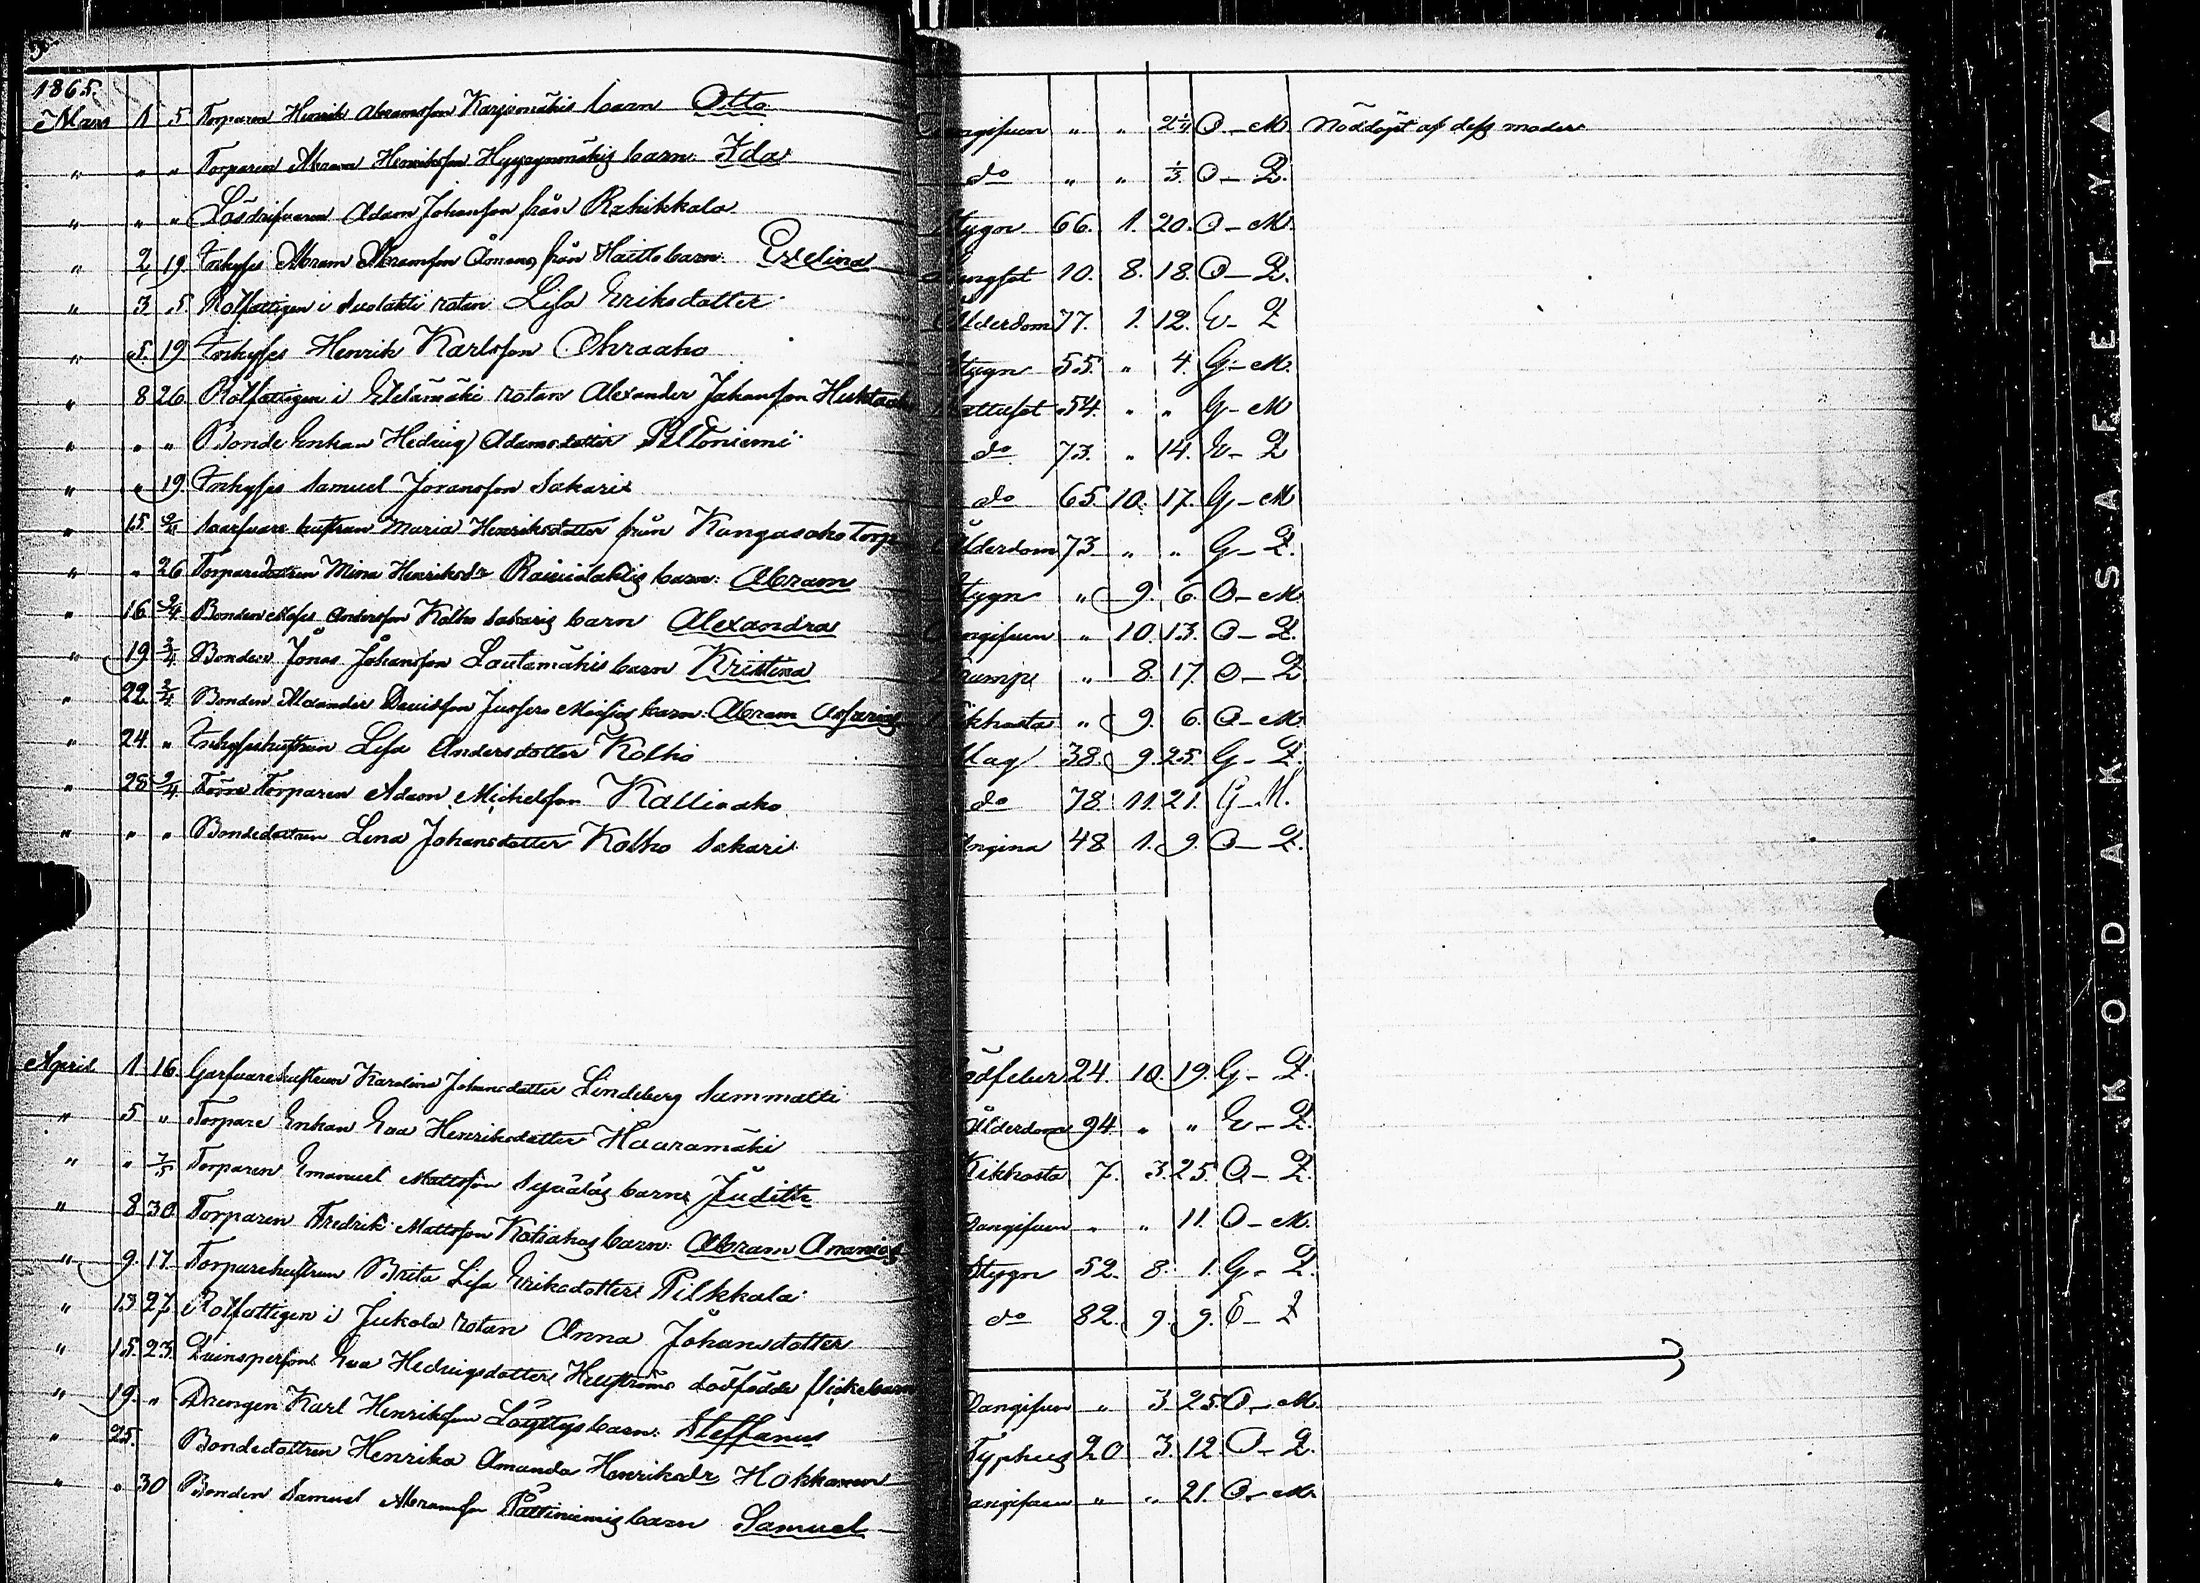 1865.
Mars 1 5 Torparen Henrik Abramsson Karjomäkis barn Otto angifven " " 2 1/4 O – M. Nöddöpt af dess moder
" " " Torparen Abram Henriksson Hyypynmäkis barn: Ida do " " 1/3. O – Q.
" " " Lösdrifvaren Adam Johansson från Rahikkala Stygn 66. 1. 20. O – M.
" 2 19. Inhyses Abram Abramsson från barn: Evelina Lungsot 10. 8. 18. O – Q.
" 3 5. Rotfattigen i rotan Lisa Eriksdotter Ålderdom 77. 1. 12. E – Q
" 5. 19 Inhyses Henrik Karlsson Ohraaho Stygn 55. " 4. G – M.
" 8 26. Rotfattigen i Etelämäki rotan Alexander Johansson 54. " " G – M
" " " Bonde Enkan Hedvig Adamsdotter Peltoniemi do 73. " 14. E – Q
" " 19. Inhyses Samuel Sakari do 65. 10. 17. G – M
" 15. 2/4 hustrun Maria Henriksdotter från Kangasaho Torp Ålderdom 73 " " G – Q.
" " 26 Torparedottren Mina Henriksdr barn: Abram Stygn " 9. 6. O – M
" 16. 2/4 Bonden Andersson Kolho Sakaris barn Alexandra angifven " 10. 13. O – Q.
" 19 2/4 Bonden Jonas Johansson Lautamäkis barn Kristina " 8. 17. O – Q
" 22. 2/4 Bonden Alexander Davidsson barn: Abram Kikhosta " 9. 6. O – M
" 24. " Inhyseshustrun Lisa Andersdotter Kolho 38. 9. 25. G – Q.
" 28 2/4 Torparen Adam Michelsson Kallioaho do 78. 11. 21. G – M.
" " " Bondedottren Lena Johansdotter Kolho Sakari Angina 48 1. 9. O – Q.
April 1 16. Garfvarehustrun Karolina Johansdotter Lindeberg Sammatti 24. 10. 19. G – Q.
" 5 " Torpare Enkan Eva Henriksdotter Haaramäki Ålderdom 94 " " E – Q.
" " 7/5 Torparen Emanuel Mattsson barn Judith Kikhosta 7. 3. 25. O – Q.
" 8 30 Torparen Fredrik Mattsson Kotiahos barn: Abram Ananias Oangifven " " 11. O – M.
" 9. 17. Torparehustrun Brita Lisa Eriksdotter Pilkkala Stygn 52. 8. 1. G – Q.
" 13 27. Rotfattigen i Jukola rotan Anna Johansdotter do 82. 9. 9. E – Q
" 15. 23. Qvinspersons Eva Hedvigsdotters Hellströms dödfödde flickebarn
" 19. " Drengen Karl Henriksson Löyttys barn: Steffanus Oangifven " 3. 25. O – M.
" 25. Bondedottren Henrika Amanda Henriksdr Hokkanen Typhus 20 3. 12. O – Q.
" " 30 Bonden Samuel Abramsson barn Samuel Oangifven " " 21. O – M.
KODAK SAFETY